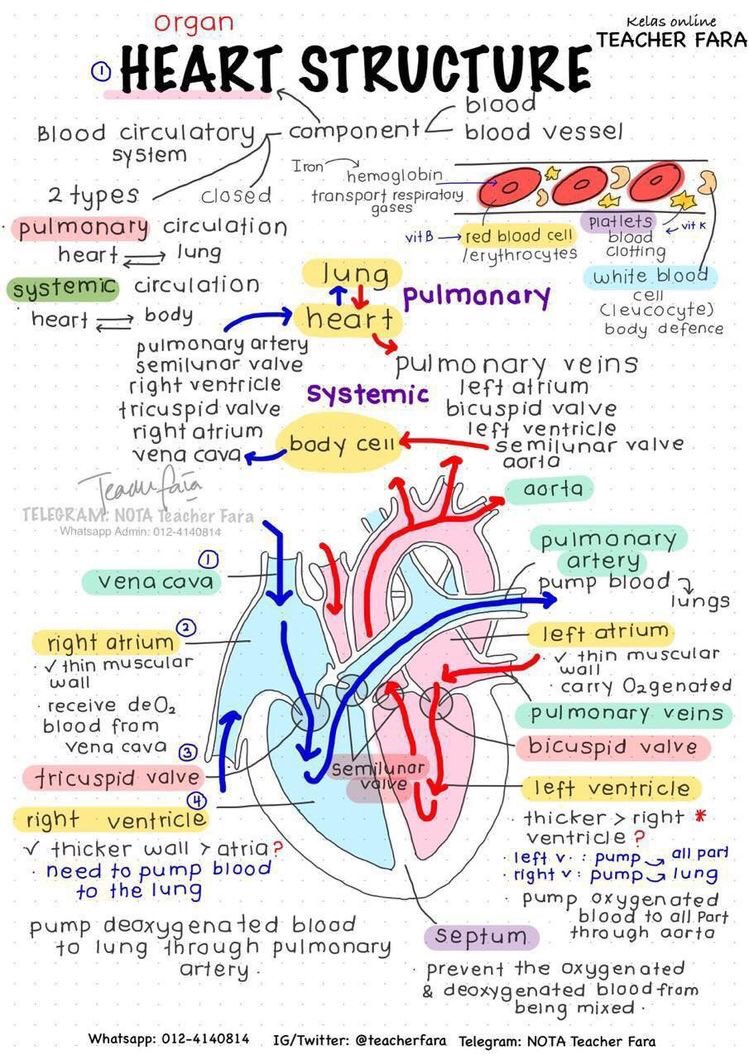 organ
Kelas online
TEACHER FARA
① HEART STRUCTURE
Blood circulatory system
component
blood
blood vessel
2 types
closed
pulmonary circulation
heart ⇌ lung
systemic circulation
heart ⇌ body
Iron
hemoglobin
transport respiratory
gases
vit B
red blood cell
/erythrocytes
platlets
blood
clotting
vit K
white blood
cell
(leucocyte)
body defence
lung
heart
pulmonary
pulmonary artery
semilunar valve
right ventricle
tricuspid valve
right atrium
vena cava
systemic
body cell
pulmonary veins
left atrium
bicuspid valve
left ventricle
semilunar valve
aorta
Teacher fara
TELEGRAM: NOTA Teacher Fara
Whatsapp Admin: 012-4140814
aorta
① vena cava
pulmonary
artery
pump blood
lungs
② right atrium
✓ thin muscular
wall
· receive deO2
blood from
vena cava
left atrium
✓ thin muscular
wall
· carry O2genated
pulmonary veins
bicuspid valve
③ tricuspid valve
semilunar
valve
④ right ventricle
✓ thicker wall > atria?
· need to pump blood
to the lung
pump deoxygenated blood
to lung through pulmonary
artery.
left ventricle
· thicker > right *
ventricle ?
· left v : pump → all part
· right v : pump → lung
· pump oxygenated
blood to all Part
through aorta
septum
· prevent the oxygenated
& deoxygenated blood from
being mixed.
Whatsapp: 012-4140814 IG/Twitter: @teacherfara Telegram: NOTA Teacher Fara